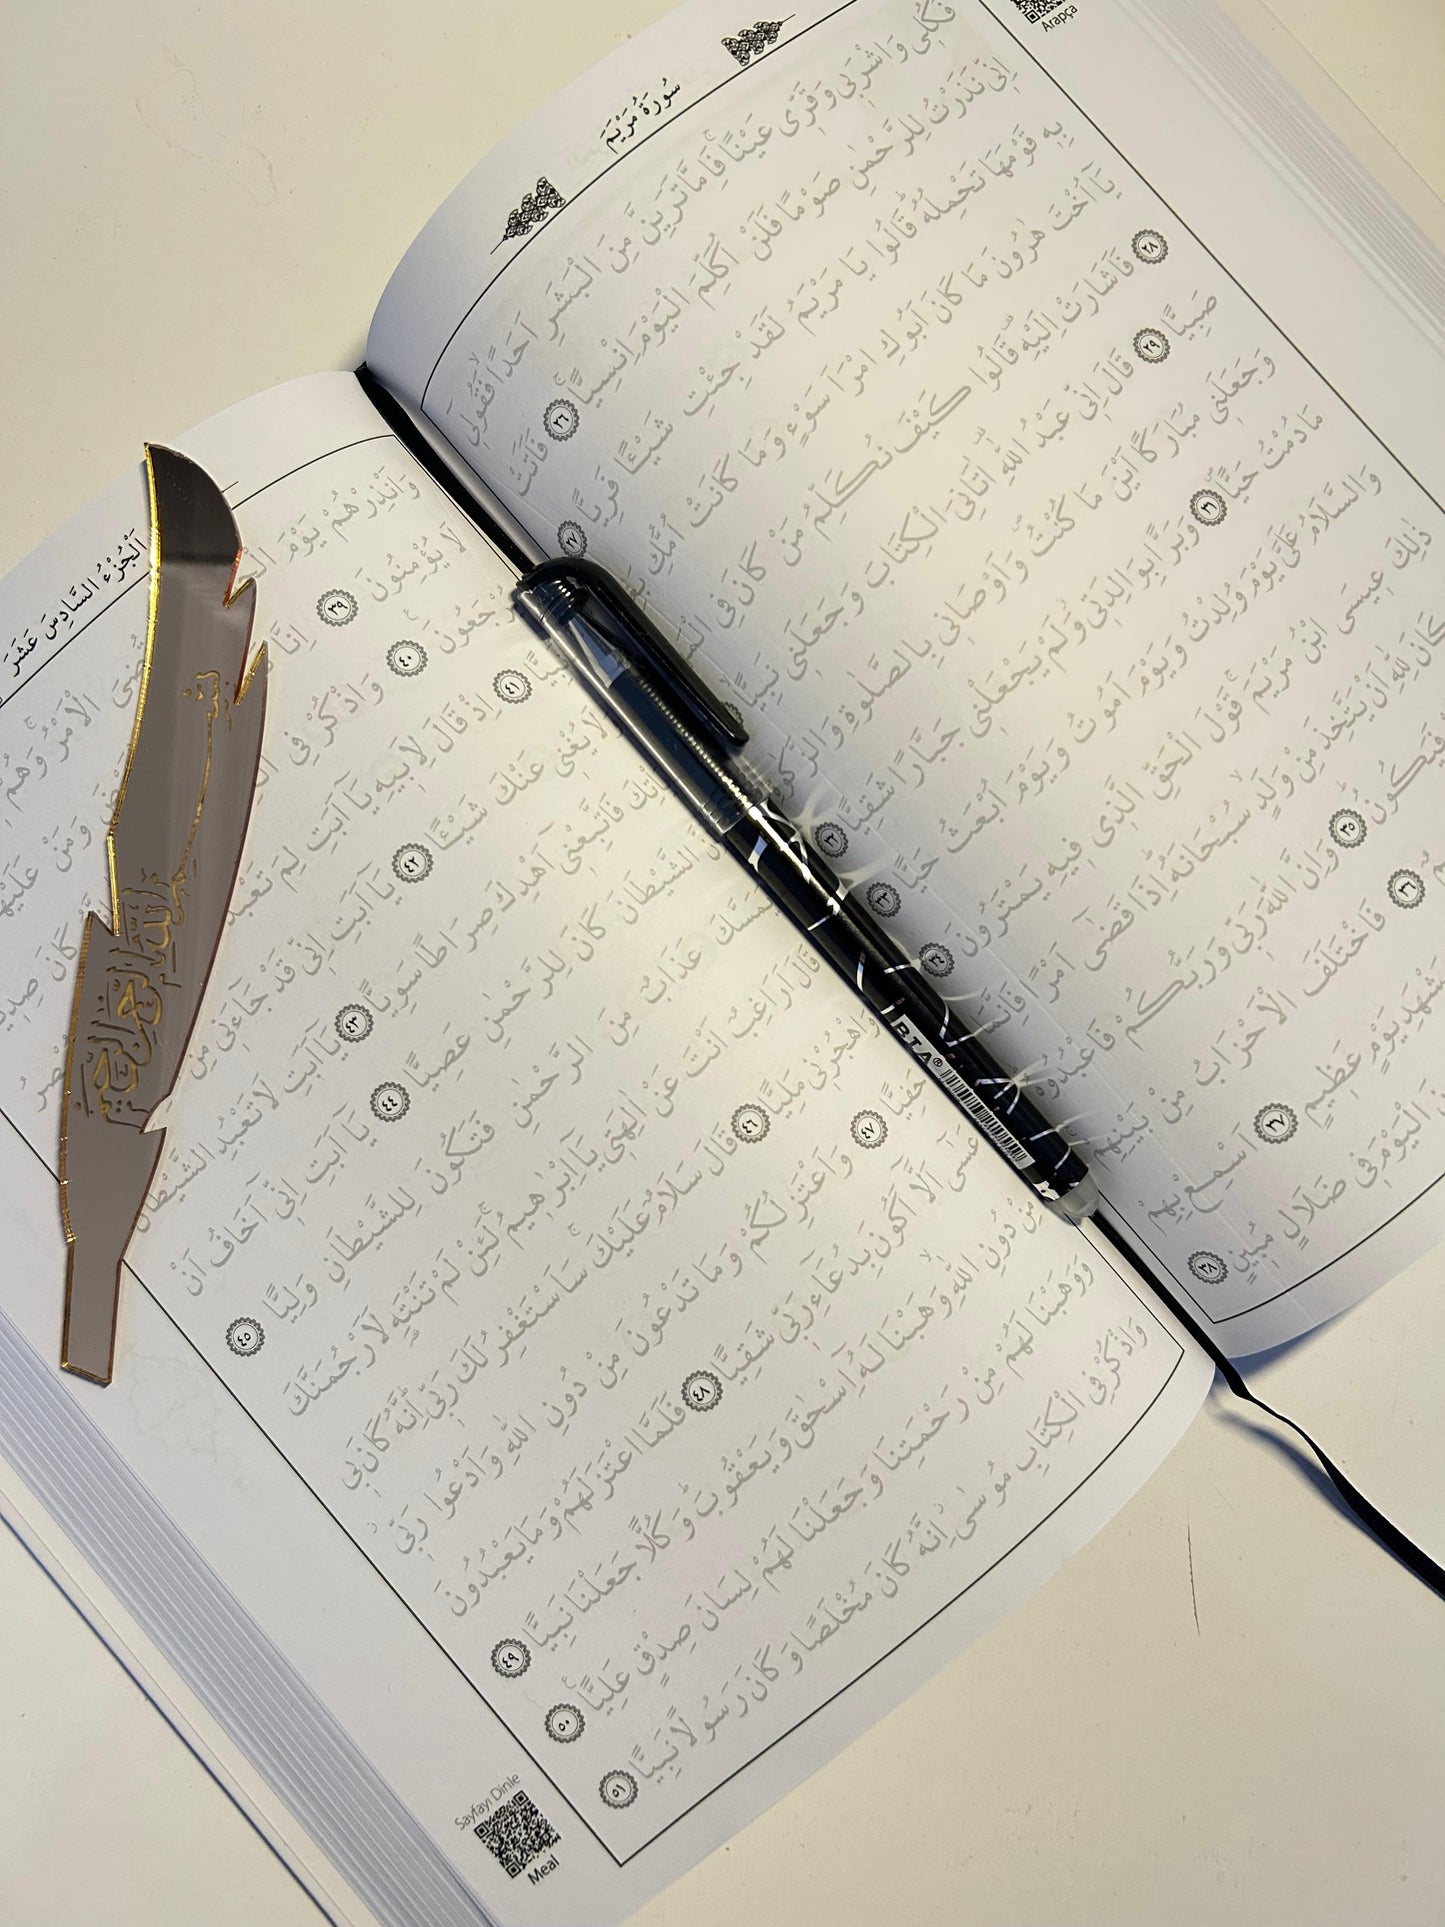 Arapça
سُورَةُ مَرْيَمَ
فَكُل۪ي وَاشْرَب۪ي وَقَرّ۪ي عَيْنًاۚ فَاِمَّا تَرَيِنَّ مِنَ الْبَشَرِ اَحَدًاۙ فَقُول۪ٓي
اِنّ۪ي نَذَرْتُ لِلرَّحْمٰنِ صَوْمًا فَلَنْ اُكَلِّمَ الْيَوْمَ اِنْسِيًّاۚ ٢٦ فَاَتَتْ
بِه۪ قَوْمَهَا تَحْمِلُهُۜ قَالُوا يَا مَرْيَمُ لَقَدْ جِئْتِ شَيْـًٔا فَرِيًّا ٢٧
يَٓا اُخْتَ هٰرُونَ مَا كَانَ اَبُوكِ امْرَاَ سَوْءٍ وَمَا كَانَتْ اُمُّكِ
٢٨ فَاَشَارَتْ اِلَيْهِۜ قَالُوا كَيْفَ نُكَلِّمُ مَنْ كَانَ فِي
صَبِيًّا ٢٩ قَالَ اِنّ۪ي عَبْدُ اللّٰهِۜ اٰتَانِيَ الْكِتَابَ وَجَعَلَن۪ي نَبِيًّا
وَجَعَلَن۪ي مُبَارَكًا اَيْنَ مَا كُنْتُۖ وَاَوْصَان۪ي بِالصَّلٰوةِ وَالزَّكٰوةِ
مَا دُمْتُ حَيًّاۖ ٣١ وَبَرًّا بِوَالِدَت۪يۘ وَلَمْ يَجْعَلْن۪ي جَبَّارًا شَقِيًّا ٣٢
وَالسَّلَامُ عَلَيَّ يَوْمَ وُلِدْتُ وَيَوْمَ اَمُوتُ وَيَوْمَ اُبْعَثُ حَيًّا ٣٣
ذٰلِكَ ع۪يسَى ابْنُ مَرْيَمَۚ قَوْلَ الْحَقِّ الَّذ۪ي ف۪يهِ يَمْتَرُونَ ٣٤
كَانَ لِلّٰهِ اَنْ يَتَّخِذَ مِنْ وَلَدٍۙ سُبْحَانَهُۜ اِذَا قَضٰٓى اَمْرًا
فَيَكُونُۜ ٣٥ وَاِنَّ اللّٰهَ رَبّ۪ي وَرَبُّكُمْ فَاعْبُدُوهُۜ
٣٦ فَاخْتَلَفَ الْاَحْزَابُ مِنْ بَيْنِهِمْۚ
يَوْمٍ عَظ۪يمٍ ٣٧ اَسْمِعْ بِهِمْ
الْيَوْمَ ف۪ي ضَلَالٍ مُب۪ينٍ ٣٨
اَلْجُزْءُ السَّادِسَ عَشَرَ
وَاَنْذِرْهُمْ يَوْمَ الْاَمْرُۢ وَهُمْ
لَا يُؤْمِنُونَ ٣٩ اِنَّا وَمَنْ
٤٠ وَاذْكُرْ فِي كَانَ
٤١ اِذْ قَالَ لِاَب۪يهِ يَٓا اَبَتِ لِمَ تَعْبُدُ
وَلَا يُغْن۪ي عَنْكَ شَيْـًٔا ٤٢ يَٓا اَبَتِ اِنّ۪ي قَدْ جَٓاءَن۪ي مِنَ
فَاتَّبِعْن۪ٓي اَهْدِكَ صِرَاطًا سَوِيًّا ٤٣ يَٓا اَبَتِ لَا تَعْبُدِ الشَّيْطَانَۜ
الشَّيْطَانَ كَانَ لِلرَّحْمٰنِ عَصِيًّا ٤٤ يَٓا اَبَتِ اِنّ۪ٓي اَخَافُ اَنْ
يَمَسَّكَ عَذَابٌ مِنَ الرَّحْمٰنِ فَتَكُونَ لِلشَّيْطَانِ وَلِيًّا ٤٥
قَالَ اَرَاغِبٌ اَنْتَ عَنْ اٰلِهَت۪ي يَٓا اِبْرٰه۪يمُۚ لَئِنْ لَمْ تَنْتَهِ لَاَرْجُمَنَّكَ
وَاهْجُرْن۪ي مَلِيًّا ٤٦ قَالَ سَلَامٌ عَلَيْكَۚ سَاَسْتَغْفِرُ لَكَ رَبّ۪يۜ اِنَّهُ كَانَ ب۪ي
حَفِيًّا ٤٧ وَاَعْتَزِلُكُمْ وَمَا تَدْعُونَ مِنْ دُونِ اللّٰهِ وَاَدْعُوا رَبّ۪يۘ
عَسٰٓى اَلَّٓا اَكُونَ بِدُعَٓاءِ رَبّ۪ي شَقِيًّا ٤٨ فَلَمَّا اعْتَزَلَهُمْ وَمَا يَعْبُدُونَ
مِنْ دُونِ اللّٰهِۙ وَهَبْنَا لَهُٓ اِسْحٰقَ وَيَعْقُوبَۜ وَكُلًّا جَعَلْنَا نَبِيًّا ٤٩
وَوَهَبْنَا لَهُمْ مِنْ رَحْمَتِنَا وَجَعَلْنَا لَهُمْ لِسَانَ صِدْقٍ عَلِيًّا۟ ٥٠
وَاذْكُرْ فِي الْكِتَابِ مُوسٰىۘ اِنَّهُ كَانَ مُخْلَصًا وَكَانَ رَسُولًا نَبِيًّا ٥١
Sayfayı Dinle
Meal
بسم الله الرحمن الرحيم
BTA®